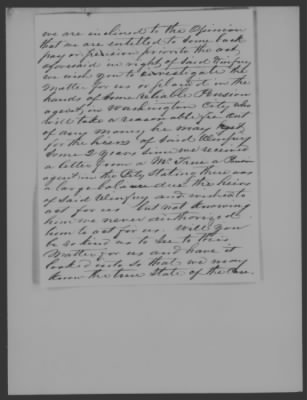 we are enclined to the Opinion
that we are entitled to some back
pay or pension prior to the act
aforesaid in right of Said Winfrey
we wish you to investigate the
Matter for us or place it in the
hands of some reliable Pension
agent, in Washington City, who
will take a reasonable fee out
of any money he may get
for the heirs of Said Winfrey
Some 2 years since we received
a letter from a Mr True a Pension
agent in the City Stating there was
a large balance due the heirs
of Said Winfrey and wished to
act for us but not knowing
him we never authorized
him to act for us. Will you
be so kind as to see to this
Matter for us and have it
looked into so that we may
know the true State of the Case.